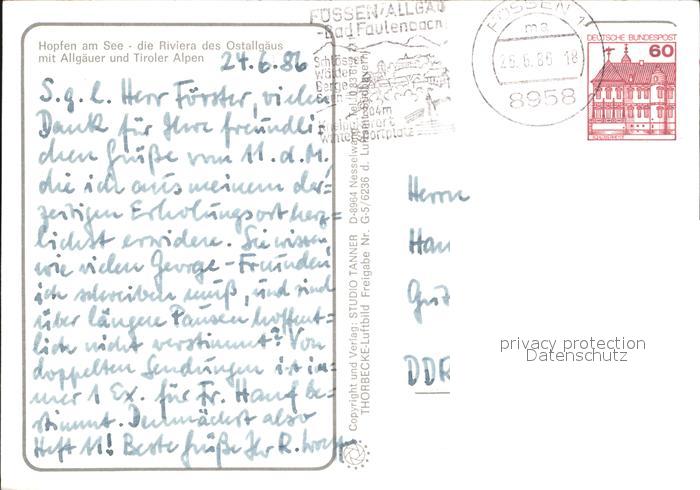 Hopfen am See - die Riviera des Ostallgäus
mit Allgäuer und Tiroler Alpen
24.6.86
S.g.l. Herr Förster, vielen
Dank für Ihre freundli-
chen Grüße vom 11. d. M.,
die ich aus meinem der-
zeitigen Erholungsort herz-
lichst erwidere. Sie wissen,
wie vielen George-Freunden
ich schreiben muß, und sind
über längere Pausen hoffent-
lich nicht verstimmt? Von
doppelten Sendungen ist im-
mer 1 Ex. für Fr. Hanf be-
stimmt. Demnächst also
Heft 11! Beste Grüße Ihr R.
Copyright und Verlag: STUDIO TANNER D-8964 Nesselwang
THORBECKE-Luftbild Freigabe Nr. G-5/6236 d.
FÜSSEN/ALLGÄU
-Bad Faulenbach
Schlösser
Wälder
Berge
Wintersportplatz
FÜSSEN 1
ma
25.6.86 18
8958
DEUTSCHE BUNDESPOST
60
Herrn
DDR
privacy protection
Datenschutz